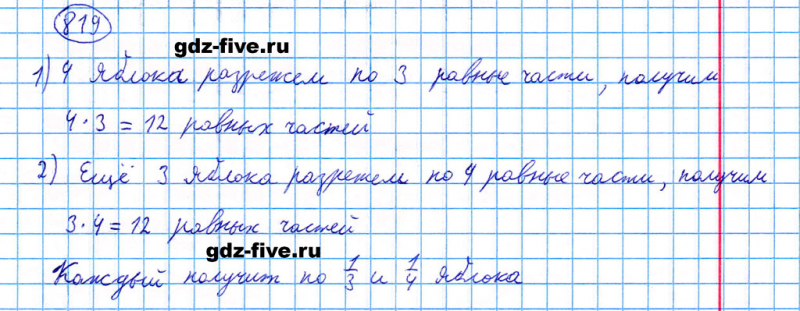 819
gdz-five.ru
1) 4 яблока разрежем по 3 равные части, получим
4·3=12 равных частей
2) Ещё 3 яблока разрежем по 4 равные части, получим
3·4=12 равных частей
gdz-five.ru
Каждый получит по 1/3 и 1/4 яблока